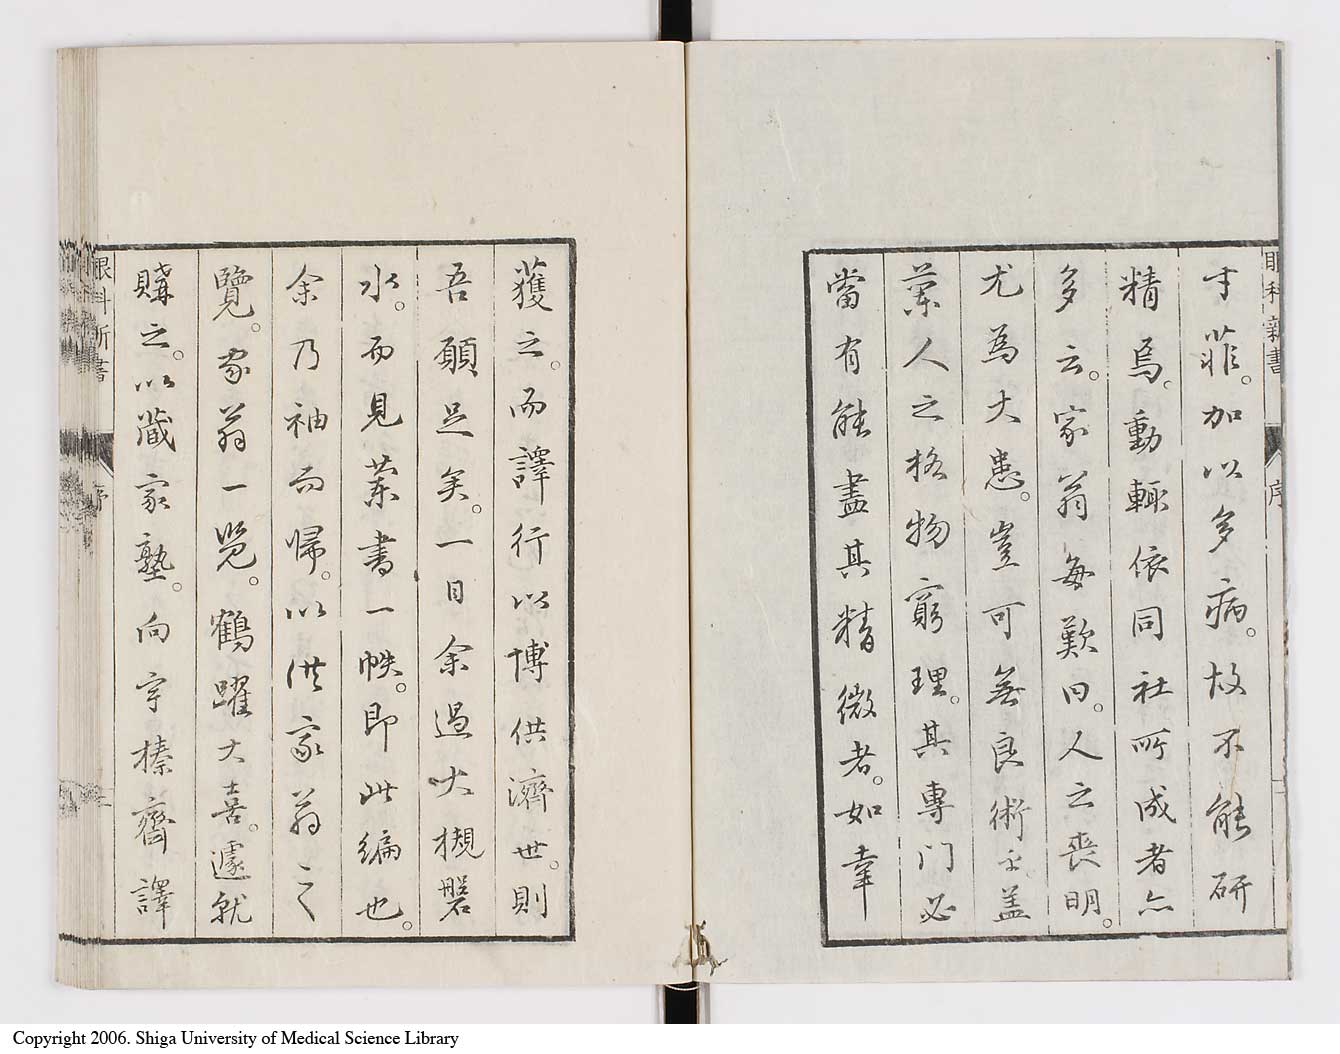 眼科新書
序
才菲。加以多病。故不能研
精焉。動輒依同社所成者亦
多云。家翁每歎曰。人之喪明。
尤為大患。豈可無良術乎。蓋
蘭人之格物窮理。其專門必
當有能盡其精微者。如幸
獲之。而譯行以博供濟世。則
吾願足矣。一日余過大槻磐
水。而見蘭書一帙。即此編也。
余乃袖而歸。以供家翁之
覽。家翁一覽。鶴躍大喜。遽就
購之。以藏家塾。向宇榛齋譯
眼科新書
序
二
Copyright 2006. Shiga University of Medical Science Library